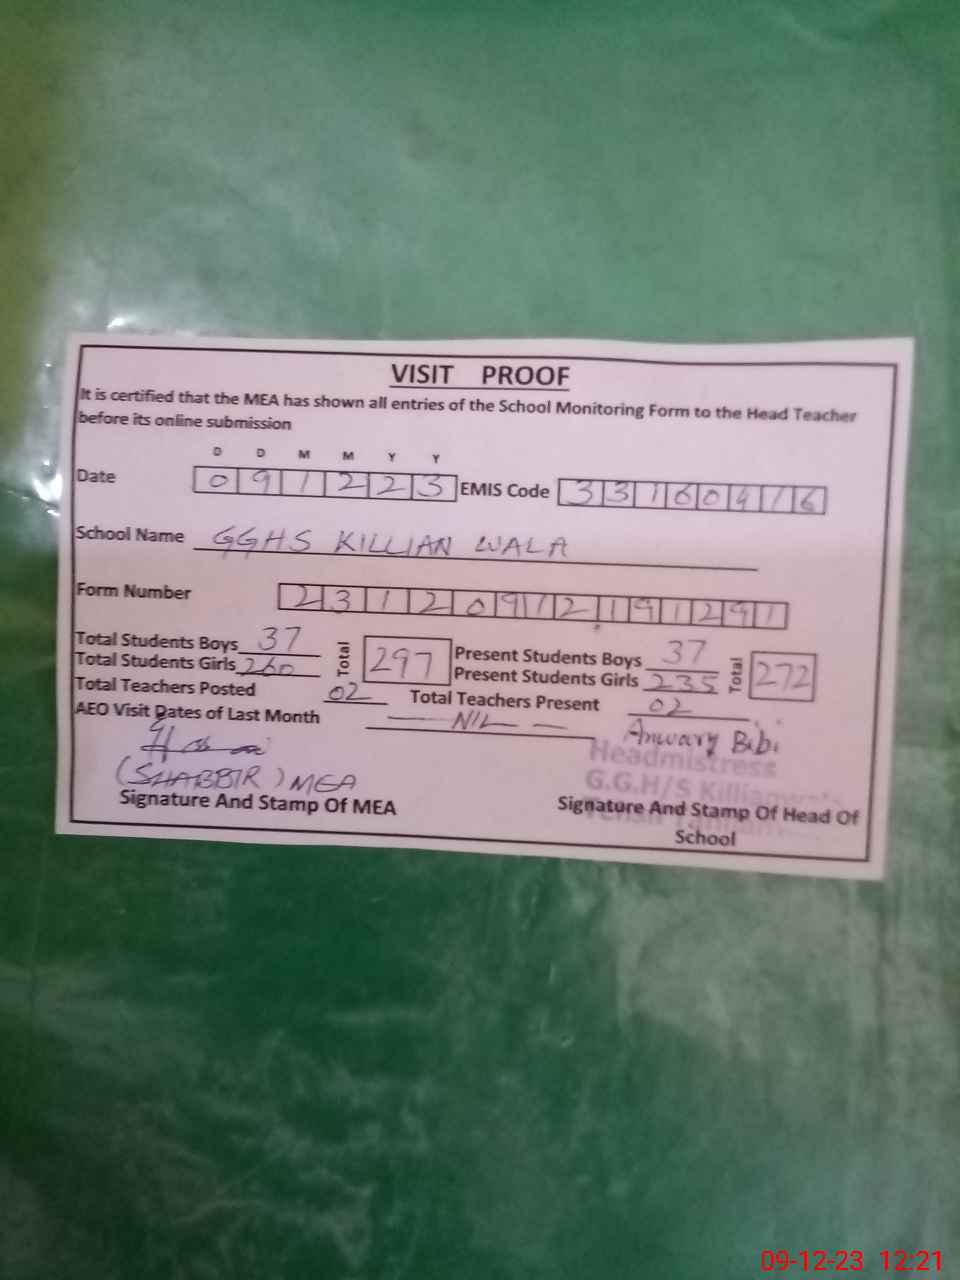 VISIT PROOF
It is certified that the MEA has shown all entries of the School Monitoring Form to the Head Teacher
before its online submission
D D M M Y Y
Date 0 9 1 2 2 3 EMIS Code 3 3 1 6 0 4 1 6
School Name GGHS KILLIAN WALA
Form Number 2 3 1 2 0 9 1 2 1 9 1 2 9 1
Total Students Boys 37 Total 297 Present Students Boys 37 Total 272
Total Students Girls 260 Present Students Girls 235
Total Teachers Posted 02 Total Teachers Present 02
AEO Visit Dates of Last Month — NIL — Anwary Bibi
Headmistress
(SHABBIR) MEA G.G.H/S
Signature And Stamp Of MEA Signature And Stamp Of Head Of
School
09-12-23 12:21